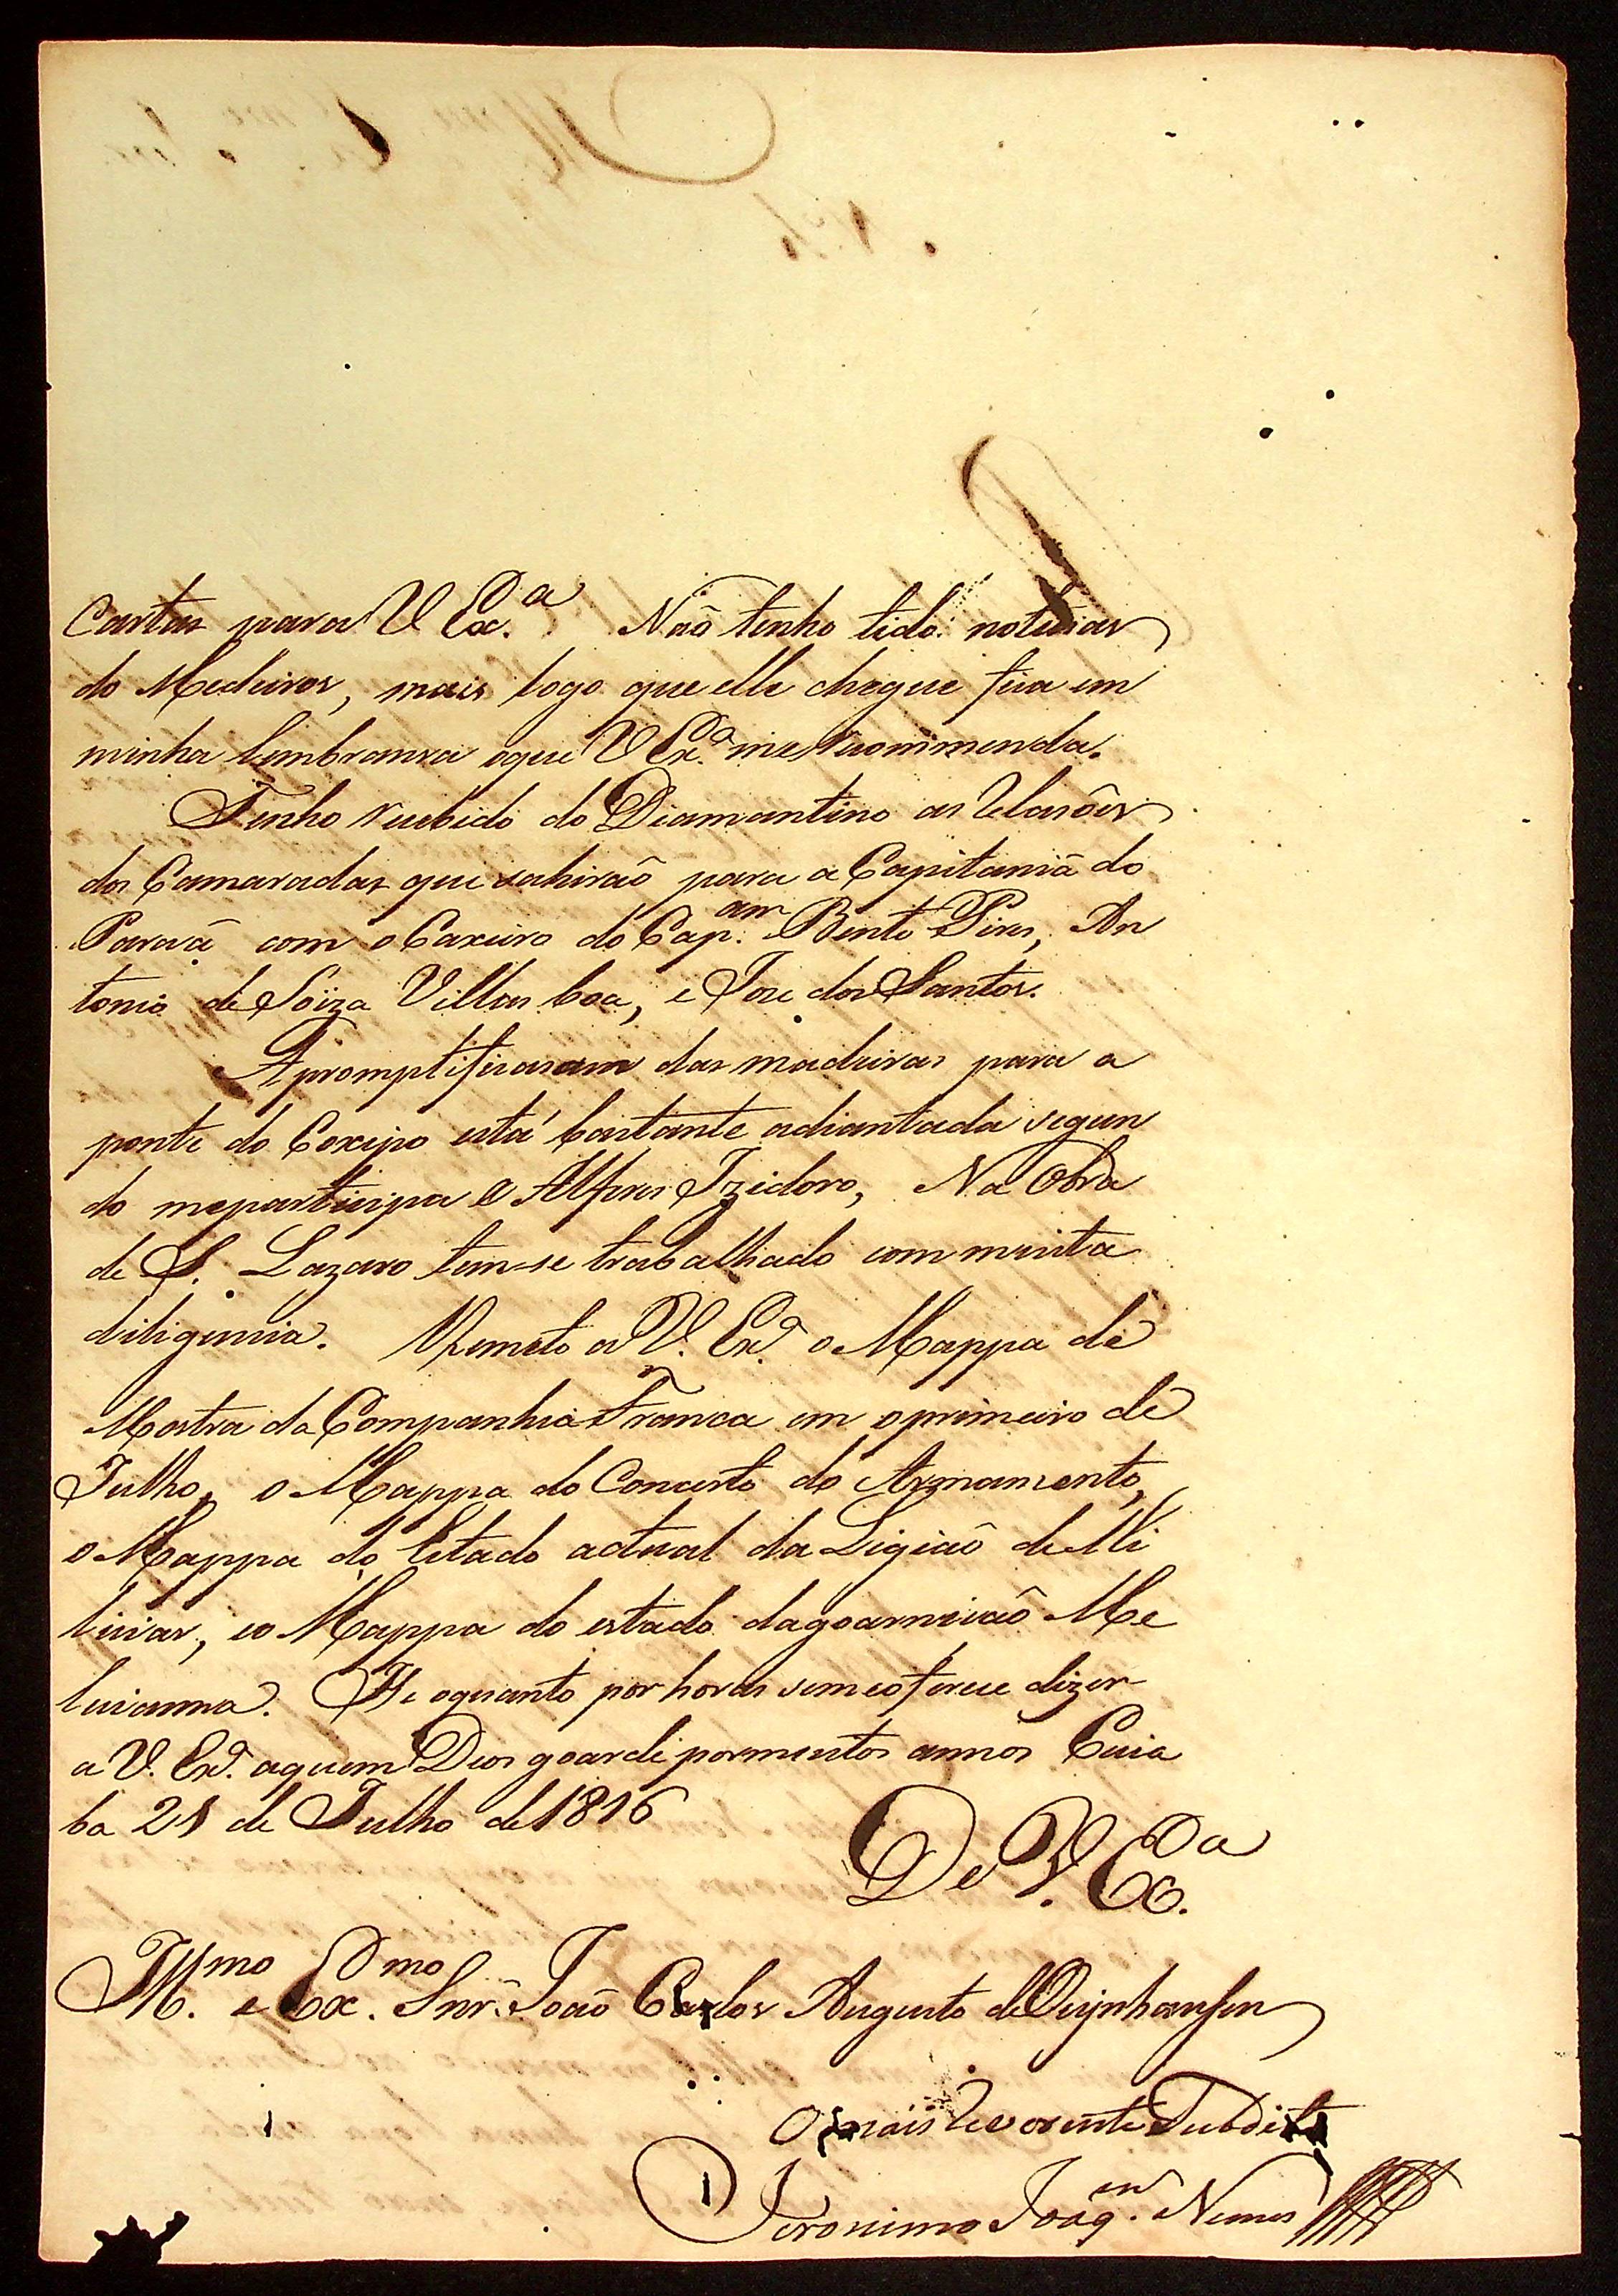 Cartas para V Ex.ª Naõ tenho tido noticias
do Medeiros, mais logo que elle chegue fica em
minha lembranca oque V Exª. me recommenda.
Tenho recebido do Diamantino as Relasões
dos Camaradas que sahiraõ para a Capitaniã do
Pará com o Caxeiro do Cap.am Bento Pires, An
tonio de Soiza Villas boa, e Jose dos Santos.
Apromptificasam das madeiras para a
ponte do Coxipo está bastante adiantada segun
do meparticipa o Alferes Izidoro, Na Obra
de S. Lazaro tem-se trabalhado com muita
diligencia. Remeto a V. Exª. o Mappa de
Mostra da Companhia Franca em oprimeiro de
Julho, o Mappa do Concerto do Armamento,
o Mappa do Estado actual da Ligiaõ de Mi
licias, eo Mappa do estado dagoarnicaõ Me
licianna. He oquanto por hora semeoferece dizer
a V. Exª. aquem Deos goarde pormuitos annos Cuia
ba 21 de Julho de 1816
De V. Ex.ª
Ill.mo e Ex.mo Snr. Joaõ Carlos Augusto de Oeynhausen
O mais Reverente Subdito
Jeronimo Joaq.m Nunes